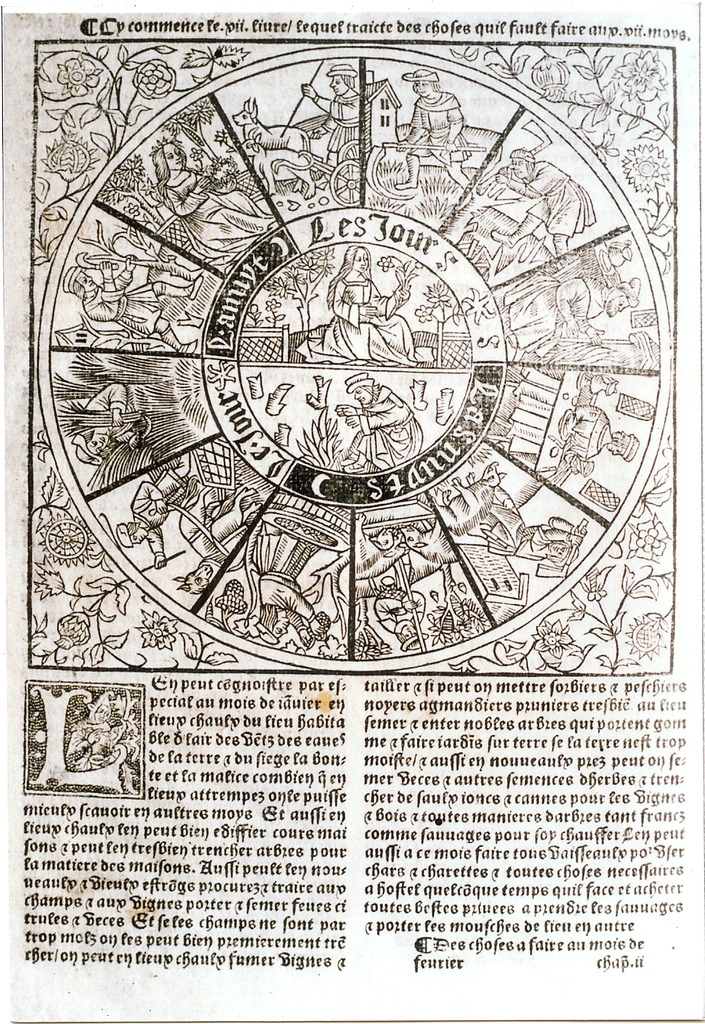 ¶ Cy commence le .xii. liure/ lequel traicte des choses quil fault faire aux .xii. moys.
Les Jours
Les nuytz
Le Jour
La nuyt
LEn peut cõgnoistre par es-
pecial au mois de iãuier en
lieux chaulx du lieu habita
ble d lair des vẽtz des eaues
de la terre ⁊ du siege la bon-
te et la malice combien q̃ en
lieux attrempez on le puisse
mieulx scauoir en aultres moys Et aussi en
lieux chaulx len peut bien ediffier cours mai
sons ⁊ peut len tresbien trencher arbres pour
la matiere des maisons. Aussi peult len nou-
ueaulx ⁊ vieulx estrõgs procurez ⁊ traire aux
champs ⁊ aux vignes porter ⁊ semer feues ci
trules ⁊ veces Et se les champs ne sont par
trop molz on les peut bien premierement trẽ
cher/ on peut en lieux chaulx fumer vignes ⁊
tailler ⁊ si peut on mettre sorbiers ⁊ peschiers
noyers agmandiers pruniers tresbiẽ au lieu
semer ⁊ enter nobles arbres qui portent gom
me ⁊ faire iardĩs sur terre se la terre nest trop
moiste/ ⁊ aussi en nouueaulx prez peut on se-
mer veces ⁊ autres semences dherbes ⁊ tren-
cher de saulx ioncs ⁊ cannes pour les vignes
⁊ bois ⁊ toutes manieres darbres tant francz
comme sauuages pour soy chauffer Len peut
aussi a ce mois faire tous vaisseaulx po² vser
chars ⁊ charettes ⁊ toutes choses necessaires
a hostel quelcõque temps quil face et acheter
toutes bestes priuees a prendre les sauuages
⁊ porter les mousches de lieu en autre
¶ Des choses a faire au mois de
feurier chap̃.ii